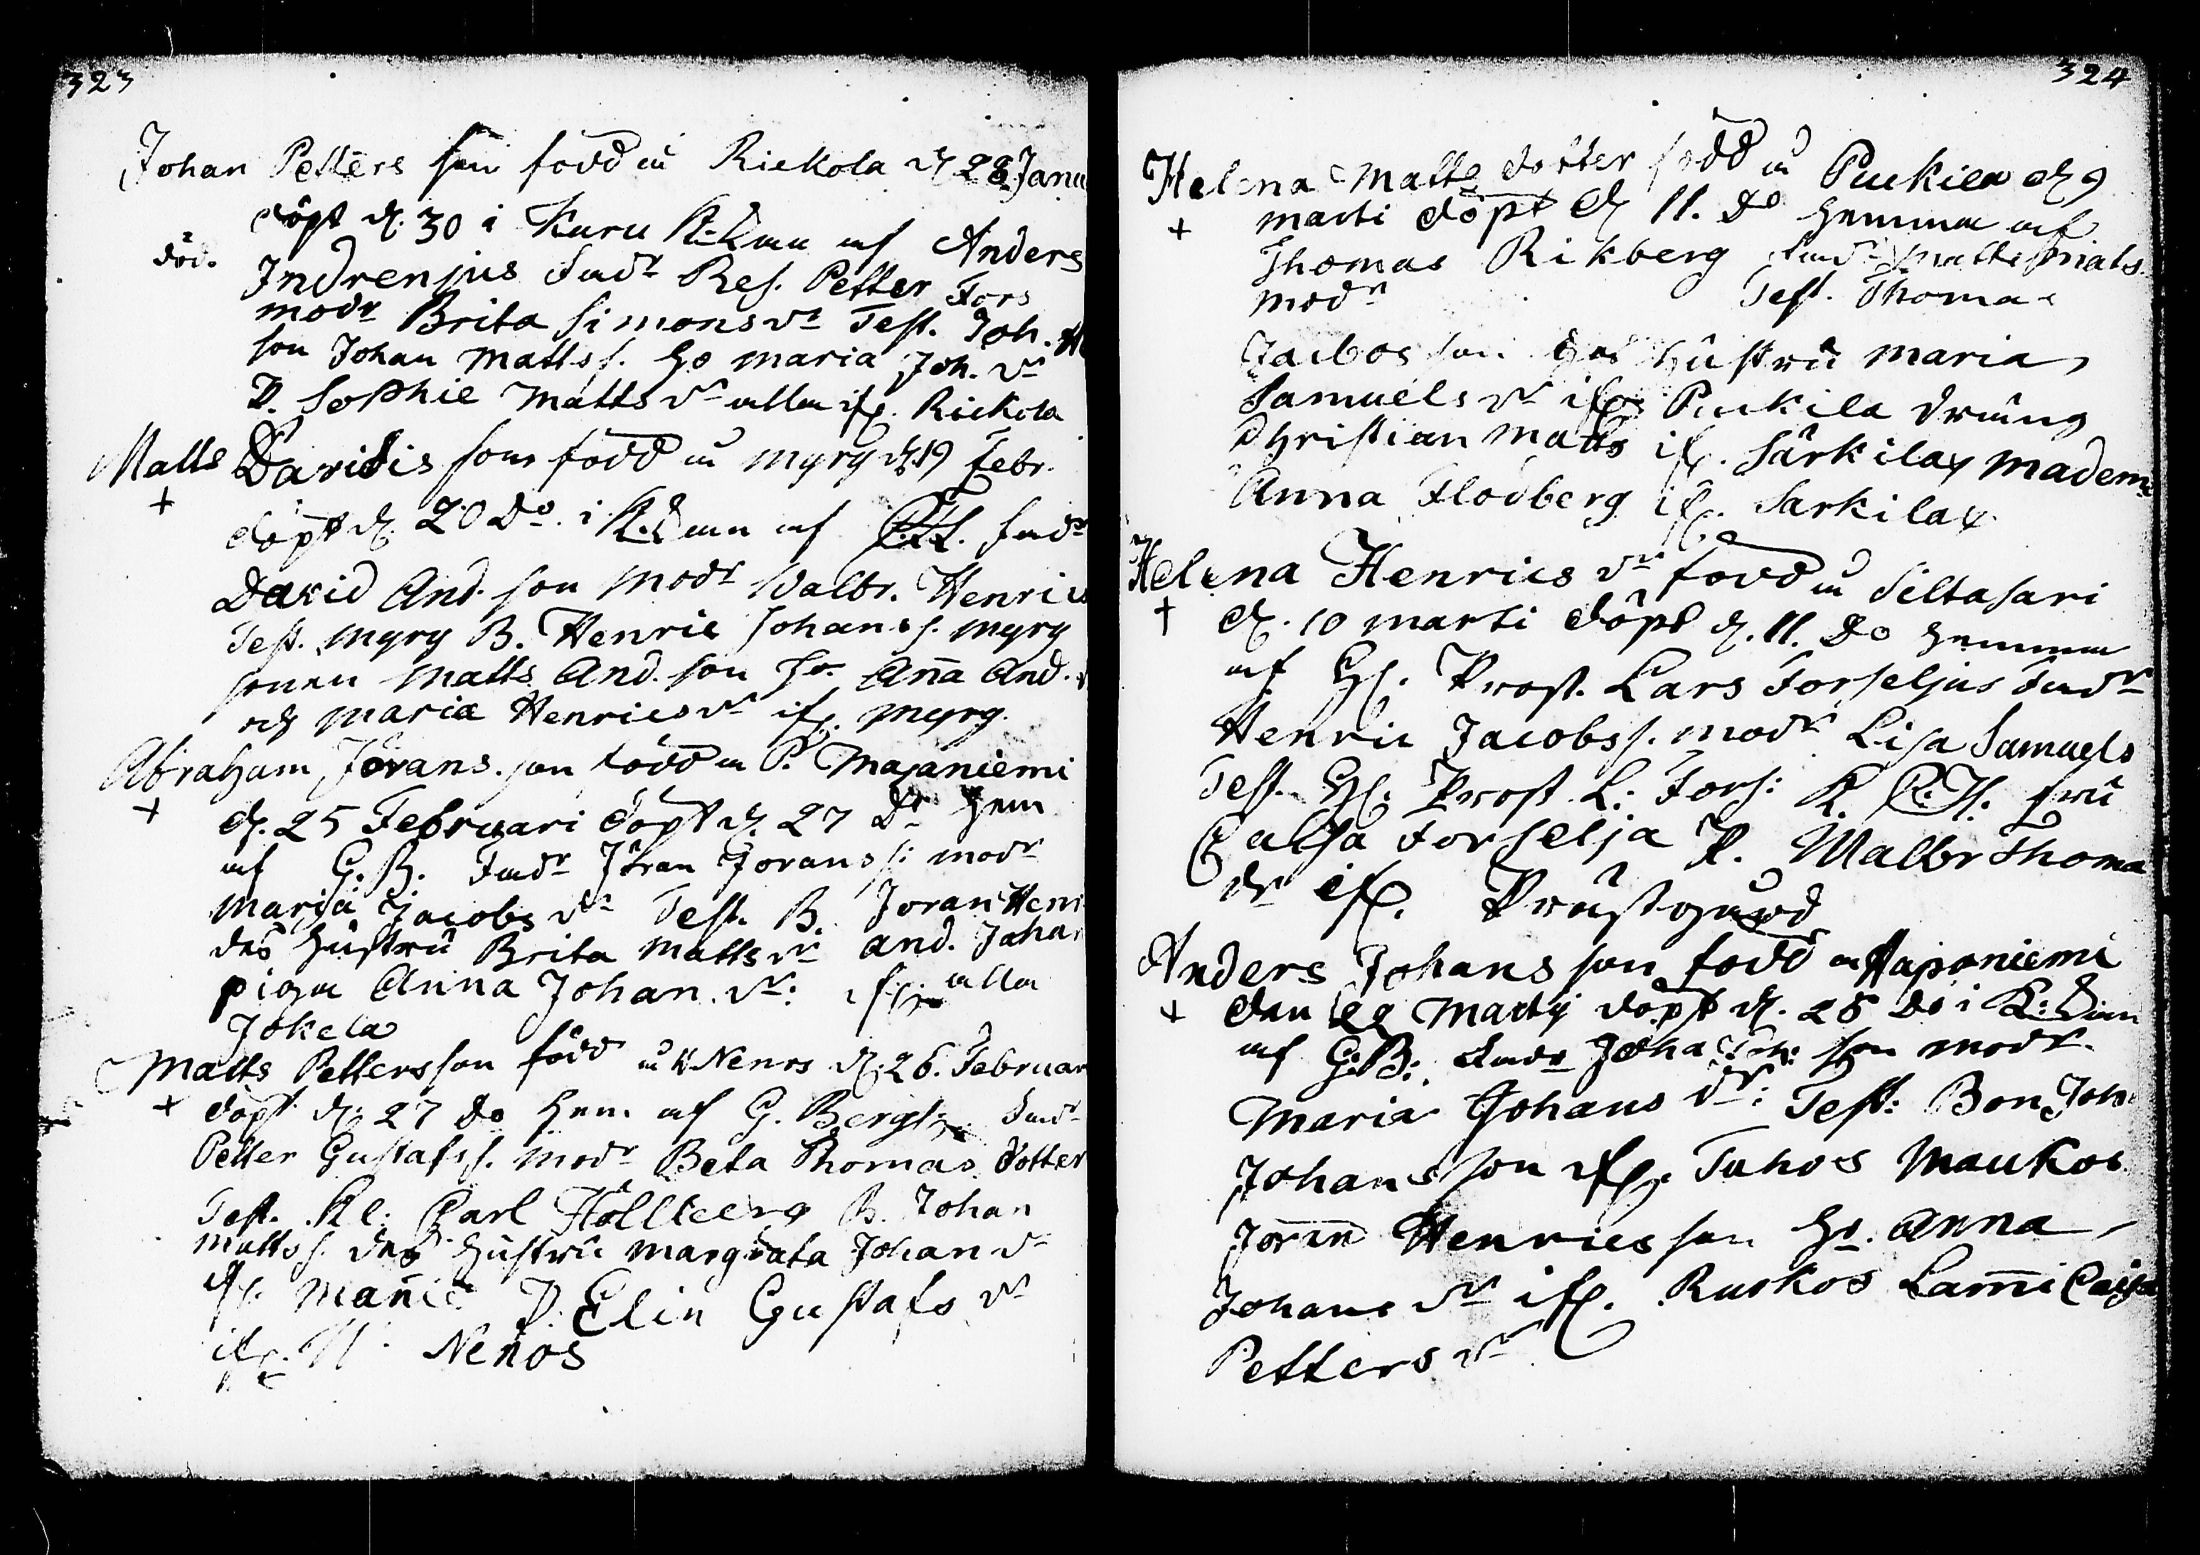 323
Johan Petters son född in Rickola d. 28 Janu
döpt d. 30 i Kuru af Anders
död.
Indrenius fadr Res. Petter Fors
modr Brita Simons dr Test. Joh.
son Johan Mattss. Ho Maria Joh. dr
P. Sophie Matts dr alla ifr. Rickola
Matts Davidis son född in Myry d. 19 Febr.
+
döpt d. 20 do. i af fadr
David And. son modr Walbr. Henrics
Test. Myry B. Henric Johanss. Myry
sonen Matts And. son Ho. Anna And.
och Maria Henrics dr ifr. Myry.
Abraham Jörans son född in P. Majaniemi
+
d. 25 Februari döpt d. 27 do hem
af G. B. Fadr Jöran Joranss: modr
Maria Jacobs dr Test. B. Joran Henr
des hustru Brita Matts dr And. Johan
piga Anna Johan. dr: ifr: alla
Jokela
Matts Pettersson född in N. Nenos d. 26. Februar
+
döpt d: 27 do hem af G. Bergh fadr
Petter Gustafss. modr Beta Thomas dotter
Test. Kl: Carl Hollberg B. Johan
Mattss. des hustru Margrata Johan dr
ifr. P. Elin Gustafs dr
ifr. N. Nenos
324
Helena Matts dotter född in Puckila d. 9
+
marti döpt d. 11. do hemma af
Thomas Rikberg fadr Matts Mats.
modr Test. Thomas
Jacobs son des hustru Maria
Samuels dr ifr Puckila dräng
Christian Matts ifr. Särkilax Madem
Anna Flodberg ifr. Särkilax
Helena Henrics dr född in Siltasari
+
d. 10 marti döpt d. 11. do hemma
af H. Prost. Lars Forseljus fadr
Henric Jacobss. modr Lisa Samuels
Test. H. Prost L: Fors: fru
Catsa Forselja P. Walbr Thoma
dr ifr. Prästgård
Anders Johans son född in Haponiemi
+
den Martij döpt d. 28 do i
af G: B: fadr Joha Joh: son modr.
Maria Johans dr: Test: Bon Joh
Johans son ifr. Tuhos Maukos
Joran Henrics son Ho. Anna
Johans dr ifr. Ruskos Lammi Caisa
Petters dr